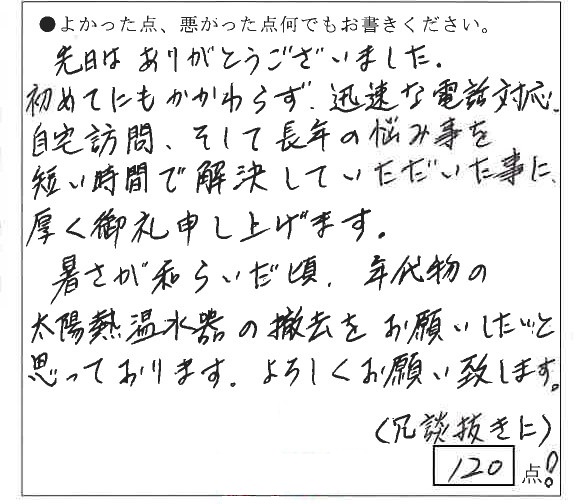 ●よかった点、悪かった点何でもお書きください。
先日は ありがとうございました.
初めてにもかかわらず、迅速な電話対応、
自宅訪問、そして長年の悩み事を
短い時間で解決していただいた事に、
厚く御礼申し上げます。
暑さが和らいだ頃、年代物の
太陽熱温水器の撤去をお願いしたいと
思っております。よろしくお願い致します。
(冗談抜きに)
120 点!